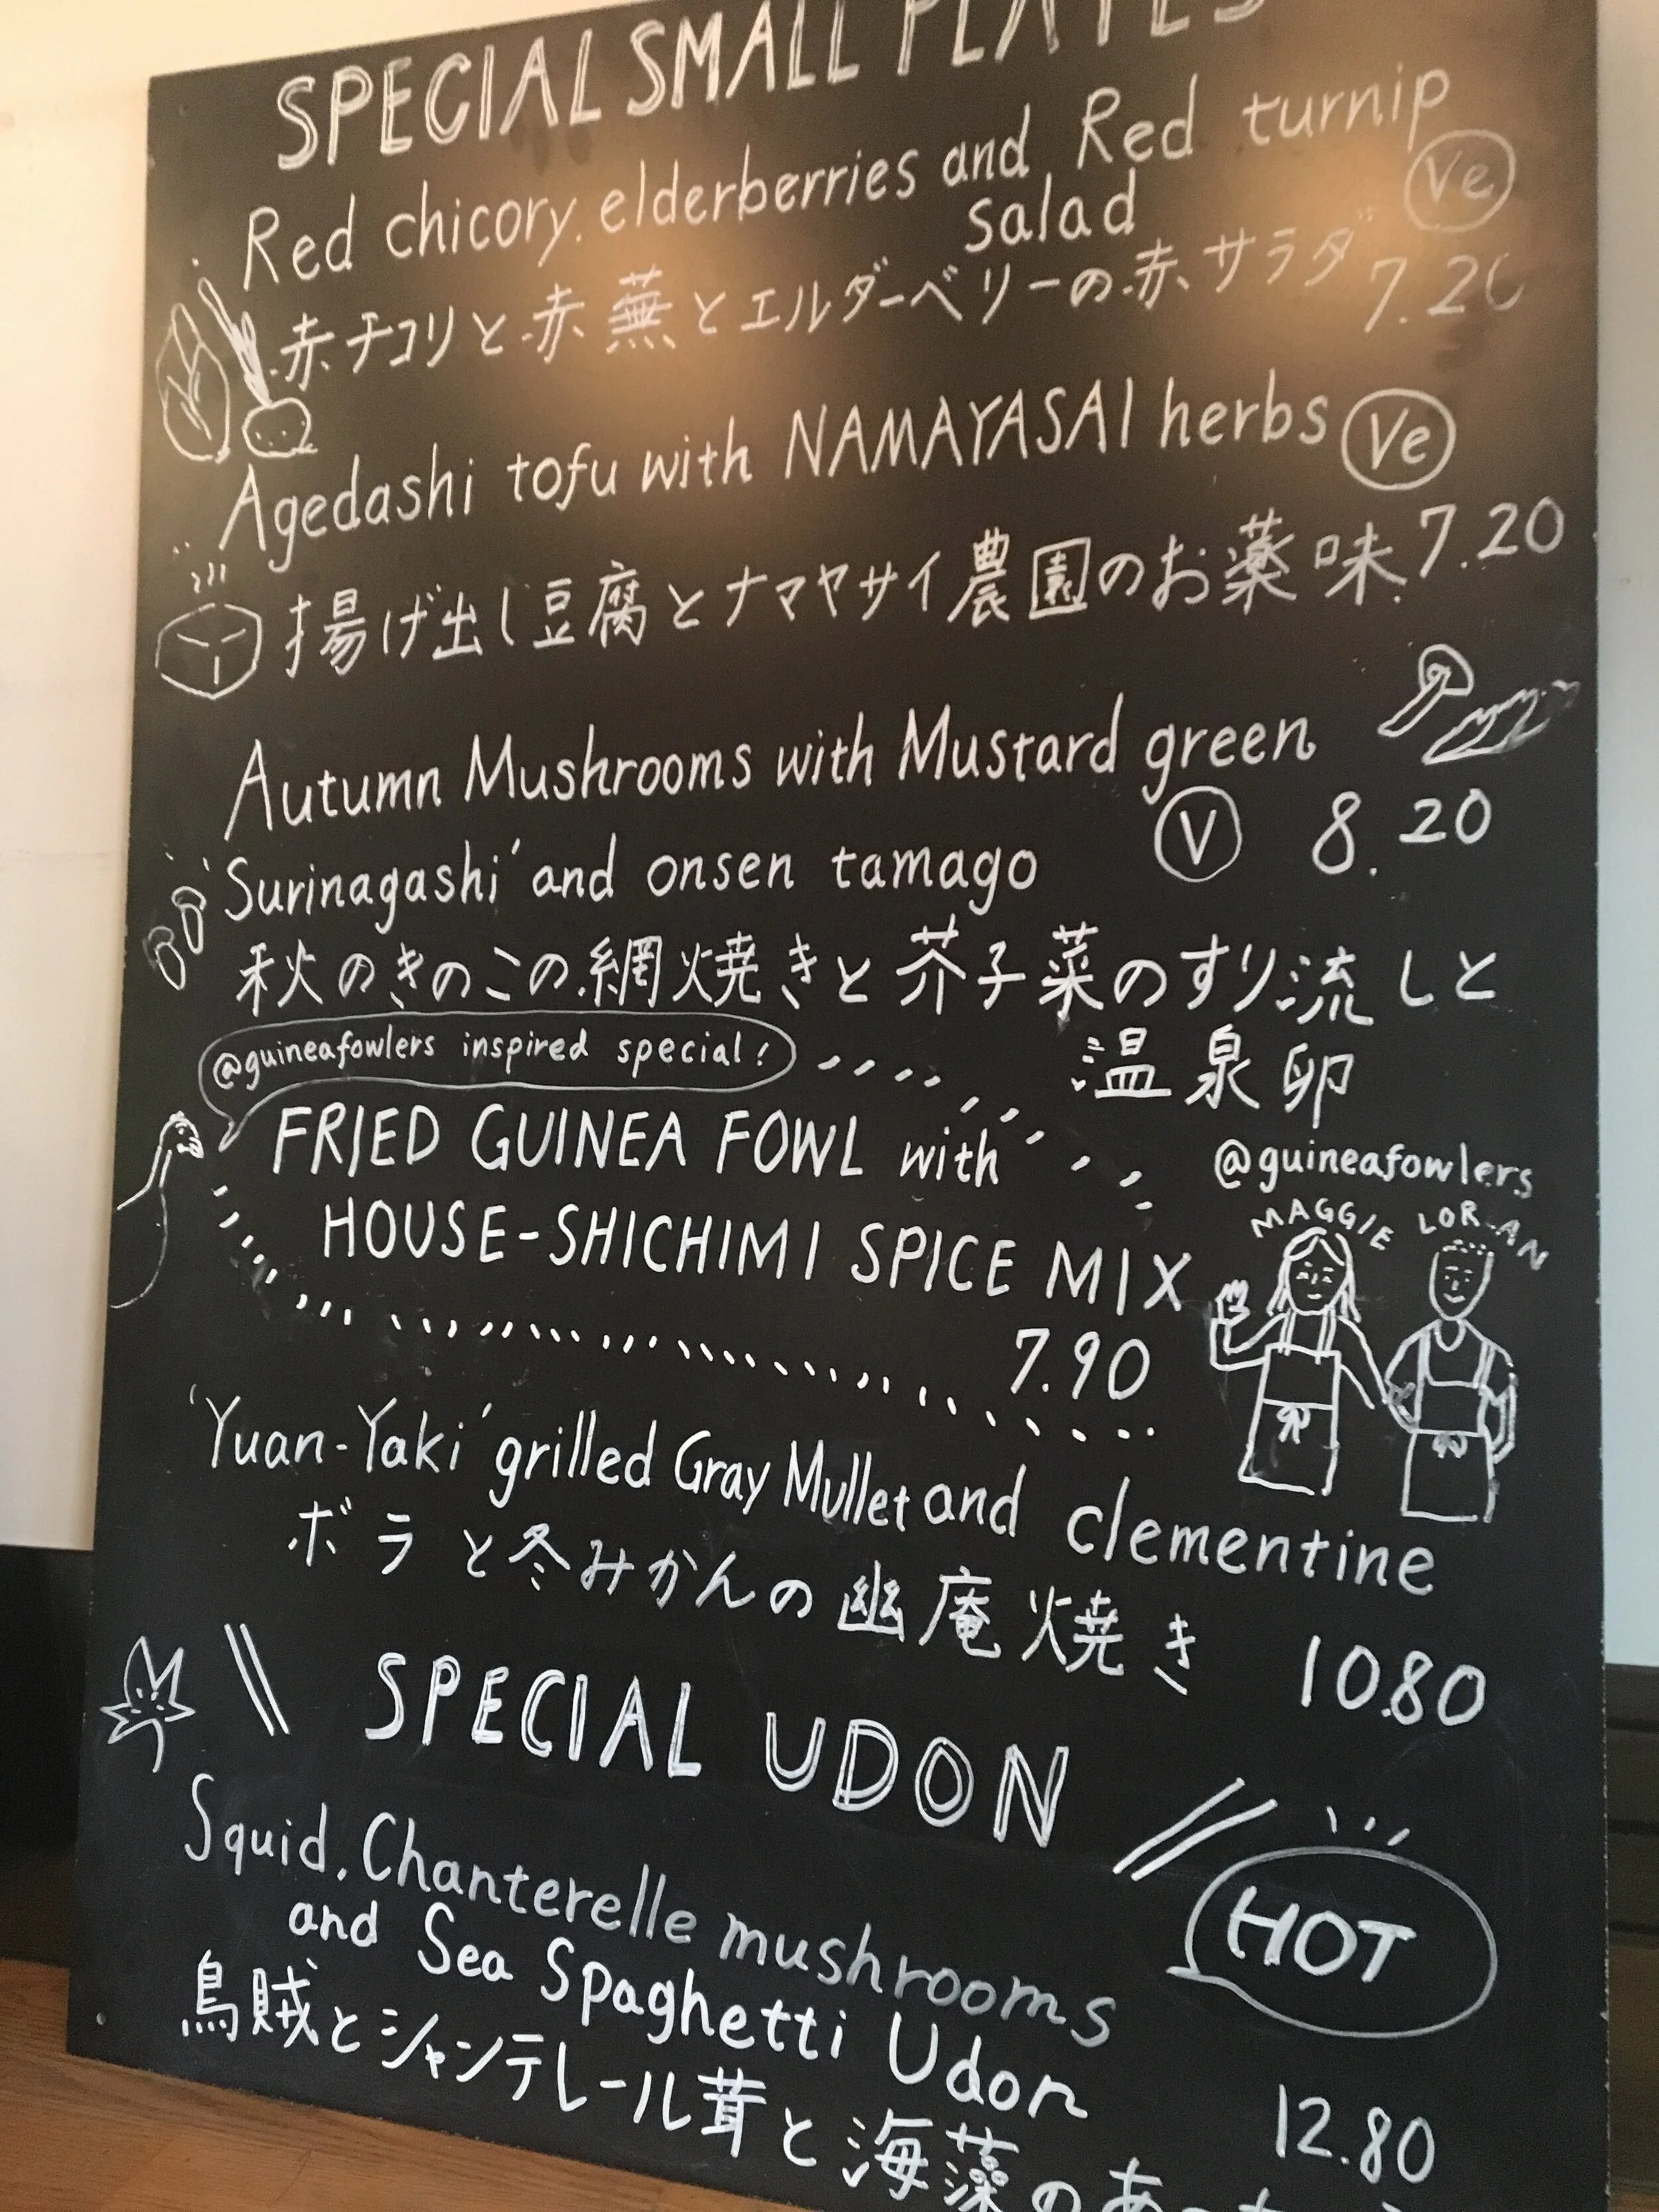 SPECIAL SMALL PLATES
Red chicory, elderberries and Red turnip
salad Ve
赤チコリと赤蕪とエルダーベリーの赤サラダ 7.20
Agedashi tofu with NAMAYASAI herbs Ve
揚げ出し豆腐とナマヤサイ農園のお薬味 7.20
Autumn Mushrooms with Mustard green
'Surinagashi' and onsen tamago V 8.20
秋のきのこの網焼きと芥子菜のすり流しと
温泉卵
@guineafowlers inspired special!
FRIED GUINEA FOWL with
HOUSE-SHICHIMI SPICE MIX
7.90
@guineafowlers
MAGGIE LORAN
'Yuan-Yaki' grilled Gray Mullet and clementine
ボラと冬みかんの幽庵焼き 10.80
SPECIAL UDON
HOT
Squid, Chanterelle mushrooms
and Sea Spaghetti Udon 12.80
烏賊とシャンテレール茸と海藻のあ